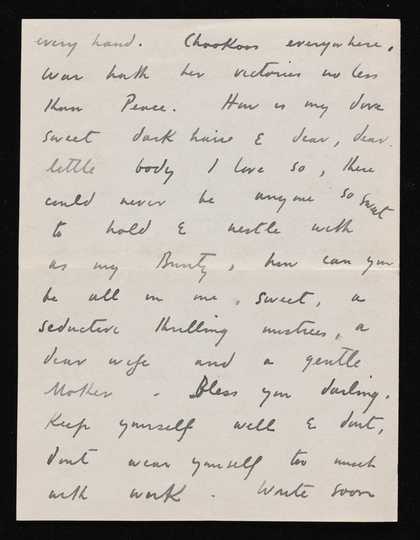 every hand. Chookoos everywhere,
War hath her victories no less
than Peace. How is my dove
sweet dark hair & dear, dear
little body I love so, there
could never be anyone so sweet
to hold & nestle with
as my Bunty, how can you
be all in one, sweet, a
seductive thrilling mistress, a
dear wife and a gentle
Mother. Bless you darling.
Keep yourself well & dont,
dont wear yourself too much
with work. Write soon